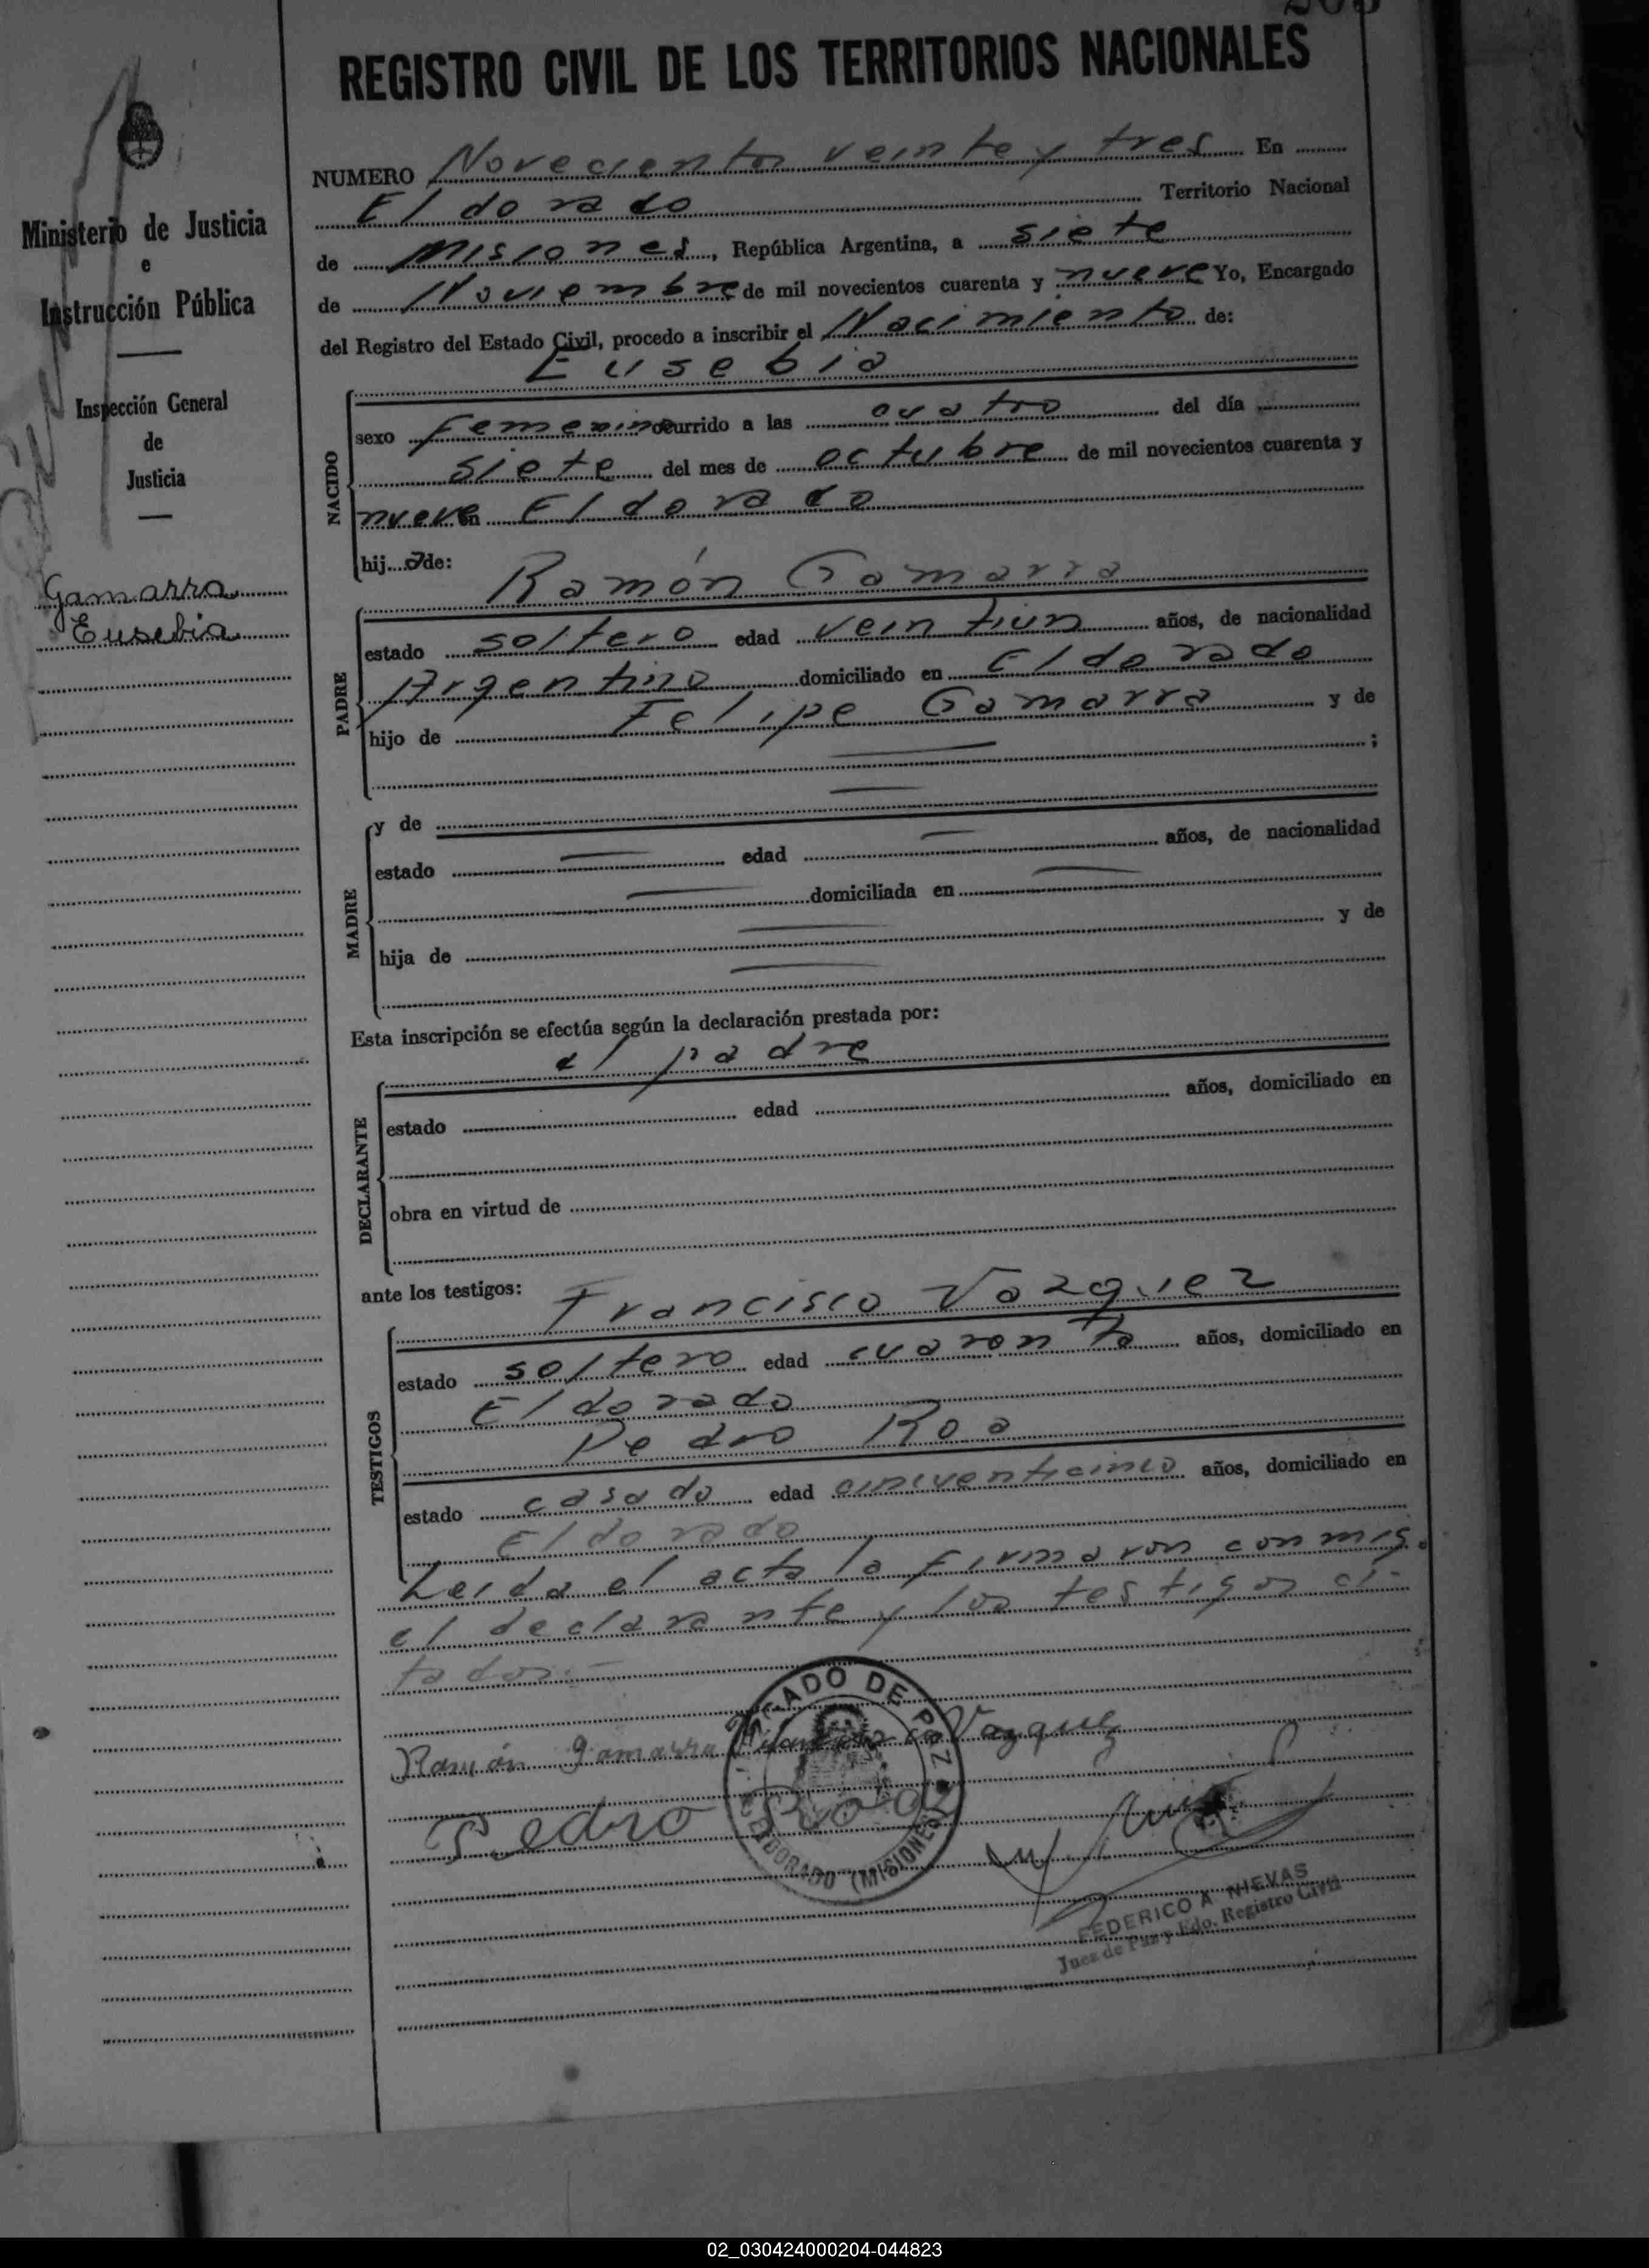 REGISTRO CIVIL DE LOS TERRITORIOS NACIONALES
NUMERO Novecientos veinte y tres En
Eldorado Territorio Nacional
de Misiones, República Argentina, a siete
de Noviembre de mil novecientos cuarenta y nueve Yo, Encargado
del Registro del Estado Civil, procedo a inscribir el Nacimiento de:
Eusebia
NACIDO
sexo femenino ocurrido a las cuatro del día
siete del mes de octubre de mil novecientos cuarenta y
nueve en Eldorado
hij a de:
Ramón Gamarra
PADRE
estado soltero edad veintiun años, de nacionalidad
Argentino domiciliado en Eldorado
hijo de Felipe Gamarra y de
;
MADRE
y de
estado edad años, de nacionalidad
domiciliada en
hija de y de
Esta inscripción se efectúa según la declaración prestada por:
el padre
DECLARANTE
estado edad años, domiciliado en
obra en virtud de
ante los testigos:
Francisco Vazquez
TESTIGOS
estado soltero edad cuarenta años, domiciliado en
Eldorado
Pedro Roa
estado casado edad años, domiciliado en
Eldorado
Leida el acta la firmaron conmig.
el declarante y los testigos ci-
tados.-
Ramón Gamarra Vazquez
Pedro Roa
JUZGADO DE PAZ
ELDORADO (MISIONES)
FEDERICO A. NIEVAS
Juez de Paz y Edo. Registro Civil
Ministerio de Justicia
e
Instrucción Pública
Inspección General
de
Justicia
Gamarra
Eusebia
02_030424000204-044823